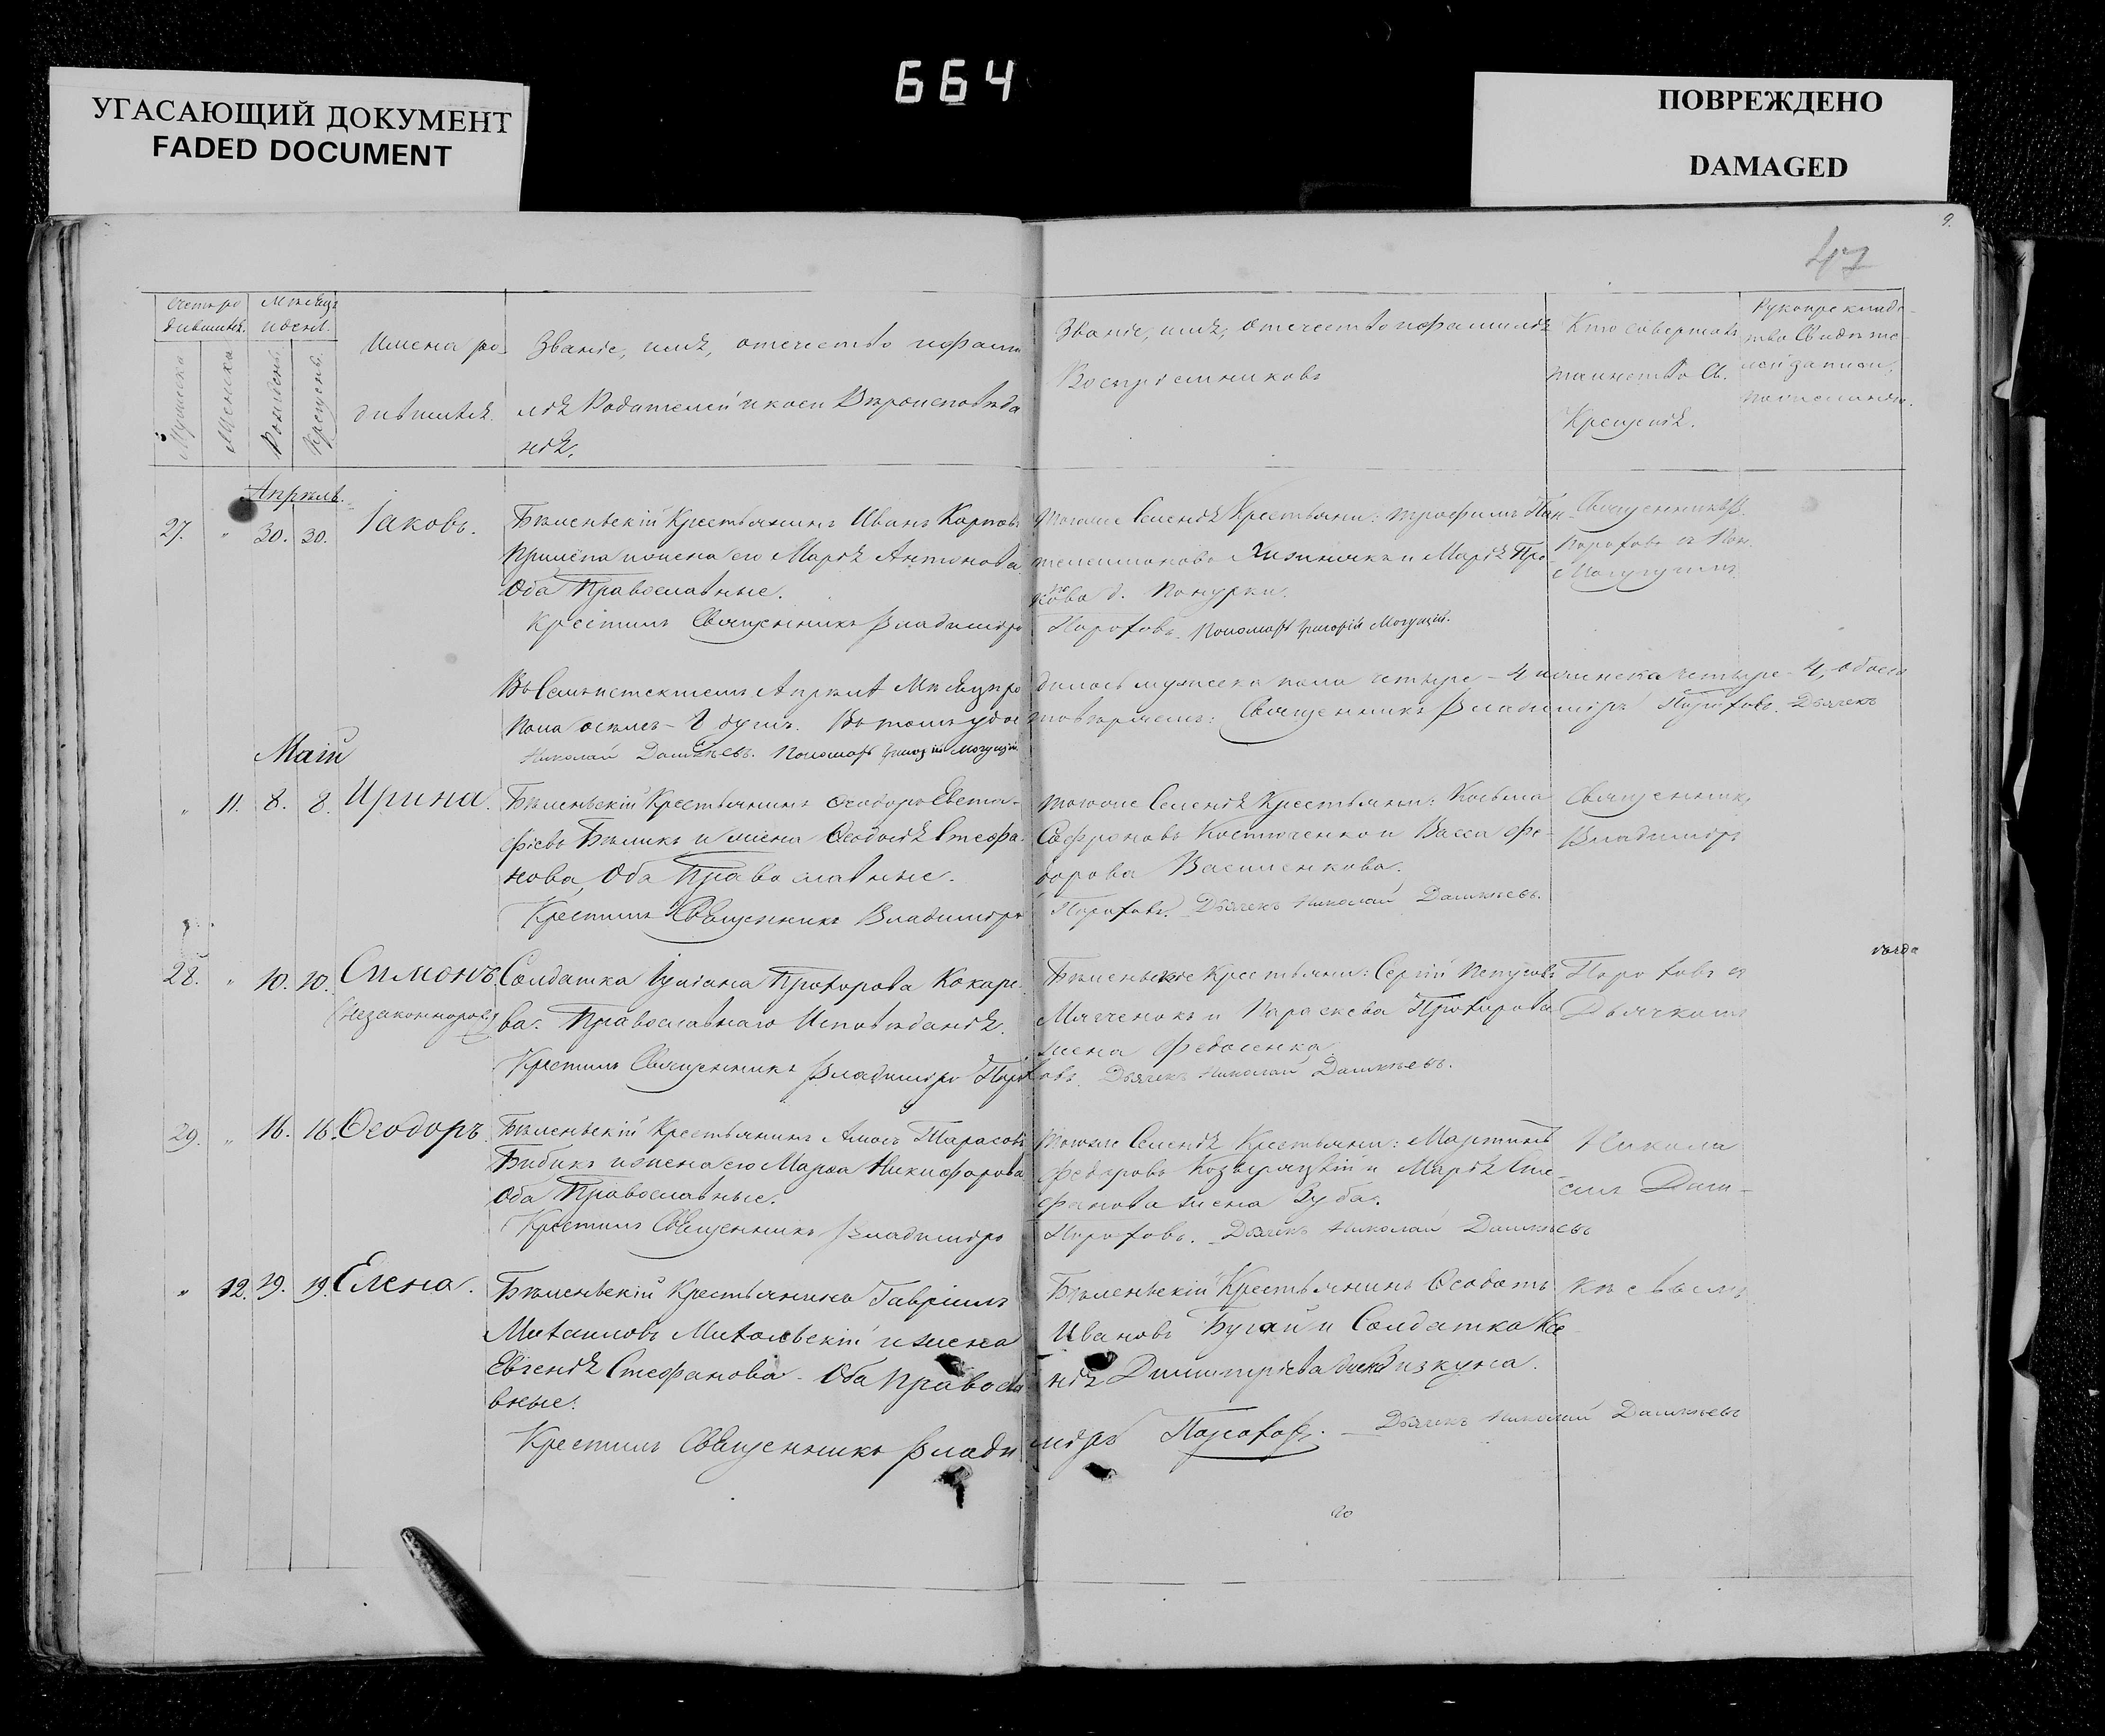 664
УГАСАЮЩИЙ ДОКУМЕНТ
FADED DOCUMENT
ПОВРЕЖДЕНО
DAMAGED
9.
47
Счетъ ро
дившихся.
Мѣсяцъ
и день.
Мужеска
Женска
Рожденія.
Крещенія.
Имена ро
дившихся.
Званіе, имя, отечество и фами
лія Родителей и коей Вѣроисповѣда
нія.
Званіе, имя, отечество и фамилія
Воспріемниковъ
Кто совершалъ
таинство Св.
Крещенія.
Рукоприкладс
тво Свидѣте
лей записи
по желанію.
Апрѣль.
27. " 30. 30. Іаковъ.
Бѣленьскій Крестьянинъ Иванъ Карповъ
Прилѣпа и жена его Марія Антонова
Оба Православные.
Крестилъ Священникъ Владиміръ
тогоже Селенія Крестьяни: Трофимъ Пан
телеимоновъ и Марія Про
кова
Пороховъ. Пономарь Григорій Могущій.
Священникъ В.
Пороховъ съ Пон.
Могущимъ
Въ Семъ истекшемъ Апрѣлѣ Мѣсяцѣ ро
дилось мужеска пола четыре - 4 и женска четыре - 4, обоего
пола осмь - 8 душъ. Въ томъ удос
товѣряемъ: Священникъ Владиміръ Пороховъ. Дьячекъ
Николай Дашкѣевъ. Пономарь Григорій Могущій
Май
" 11. 8. 8. Ирина.
Бѣленьскій Крестьянинъ Ѳеодоръ Евста-
фіевъ Бѣликъ и жена Ѳеодосія Стефа-
нова, Оба Православные.
Крестилъ Священникъ Владиміръ
тогоже Селенія Крестьяни: Косьма
Софроновъ Костюченко и Васса Фе-
дорова Василенкова.
Пороховъ. Дьячекъ Николай Дашкѣевъ.
Священникъ
Владиміръ
28. " 10. 10. Симонъ
(незаконнорож)
Солдатка Іуліана Прохорова Кокаре-
ва. Православнаго Исповѣданія.
Крестилъ Священникъ Владиміръ Порох
Бѣленьскіе Крестьяни: Сергій
и Параскева Прохорова
жена Федосенка
овъ. Дьячекъ Николай Дашкѣевъ.
Пороховъ съ
Дьячкомъ
29. " 16. 16. Ѳеодоръ.
Бѣленьскій Крестьянинъ Амосъ Тарасовъ
Бибикъ и жена его Марѳа Никифорова
Оба Православные.
Крестилъ Священникъ Владиміръ
тогоже Селенія Крестьяни: Мартинъ
Федоровъ и Марія Сте
фанова жена Зуба.
Пороховъ. Дьячекъ Николай Дашкѣевъ
Никола
емъ Даш-
" 12. 19. 19. Елена.
Бѣленьскій Крестьянинъ Гавріилъ
Михаиловъ Михольскій и жена
Евгенія Стефанова - Оба Правосла
вные.
Крестилъ Священникъ Влади
Бѣленьскій Крестьянинъ Ѳеодотъ
Ивановъ Бугай и Солдатка Ксе
нія Димитріева
міръ Пороховъ. Дьячекъ Николай Дашкѣевъ
кѣевымъ